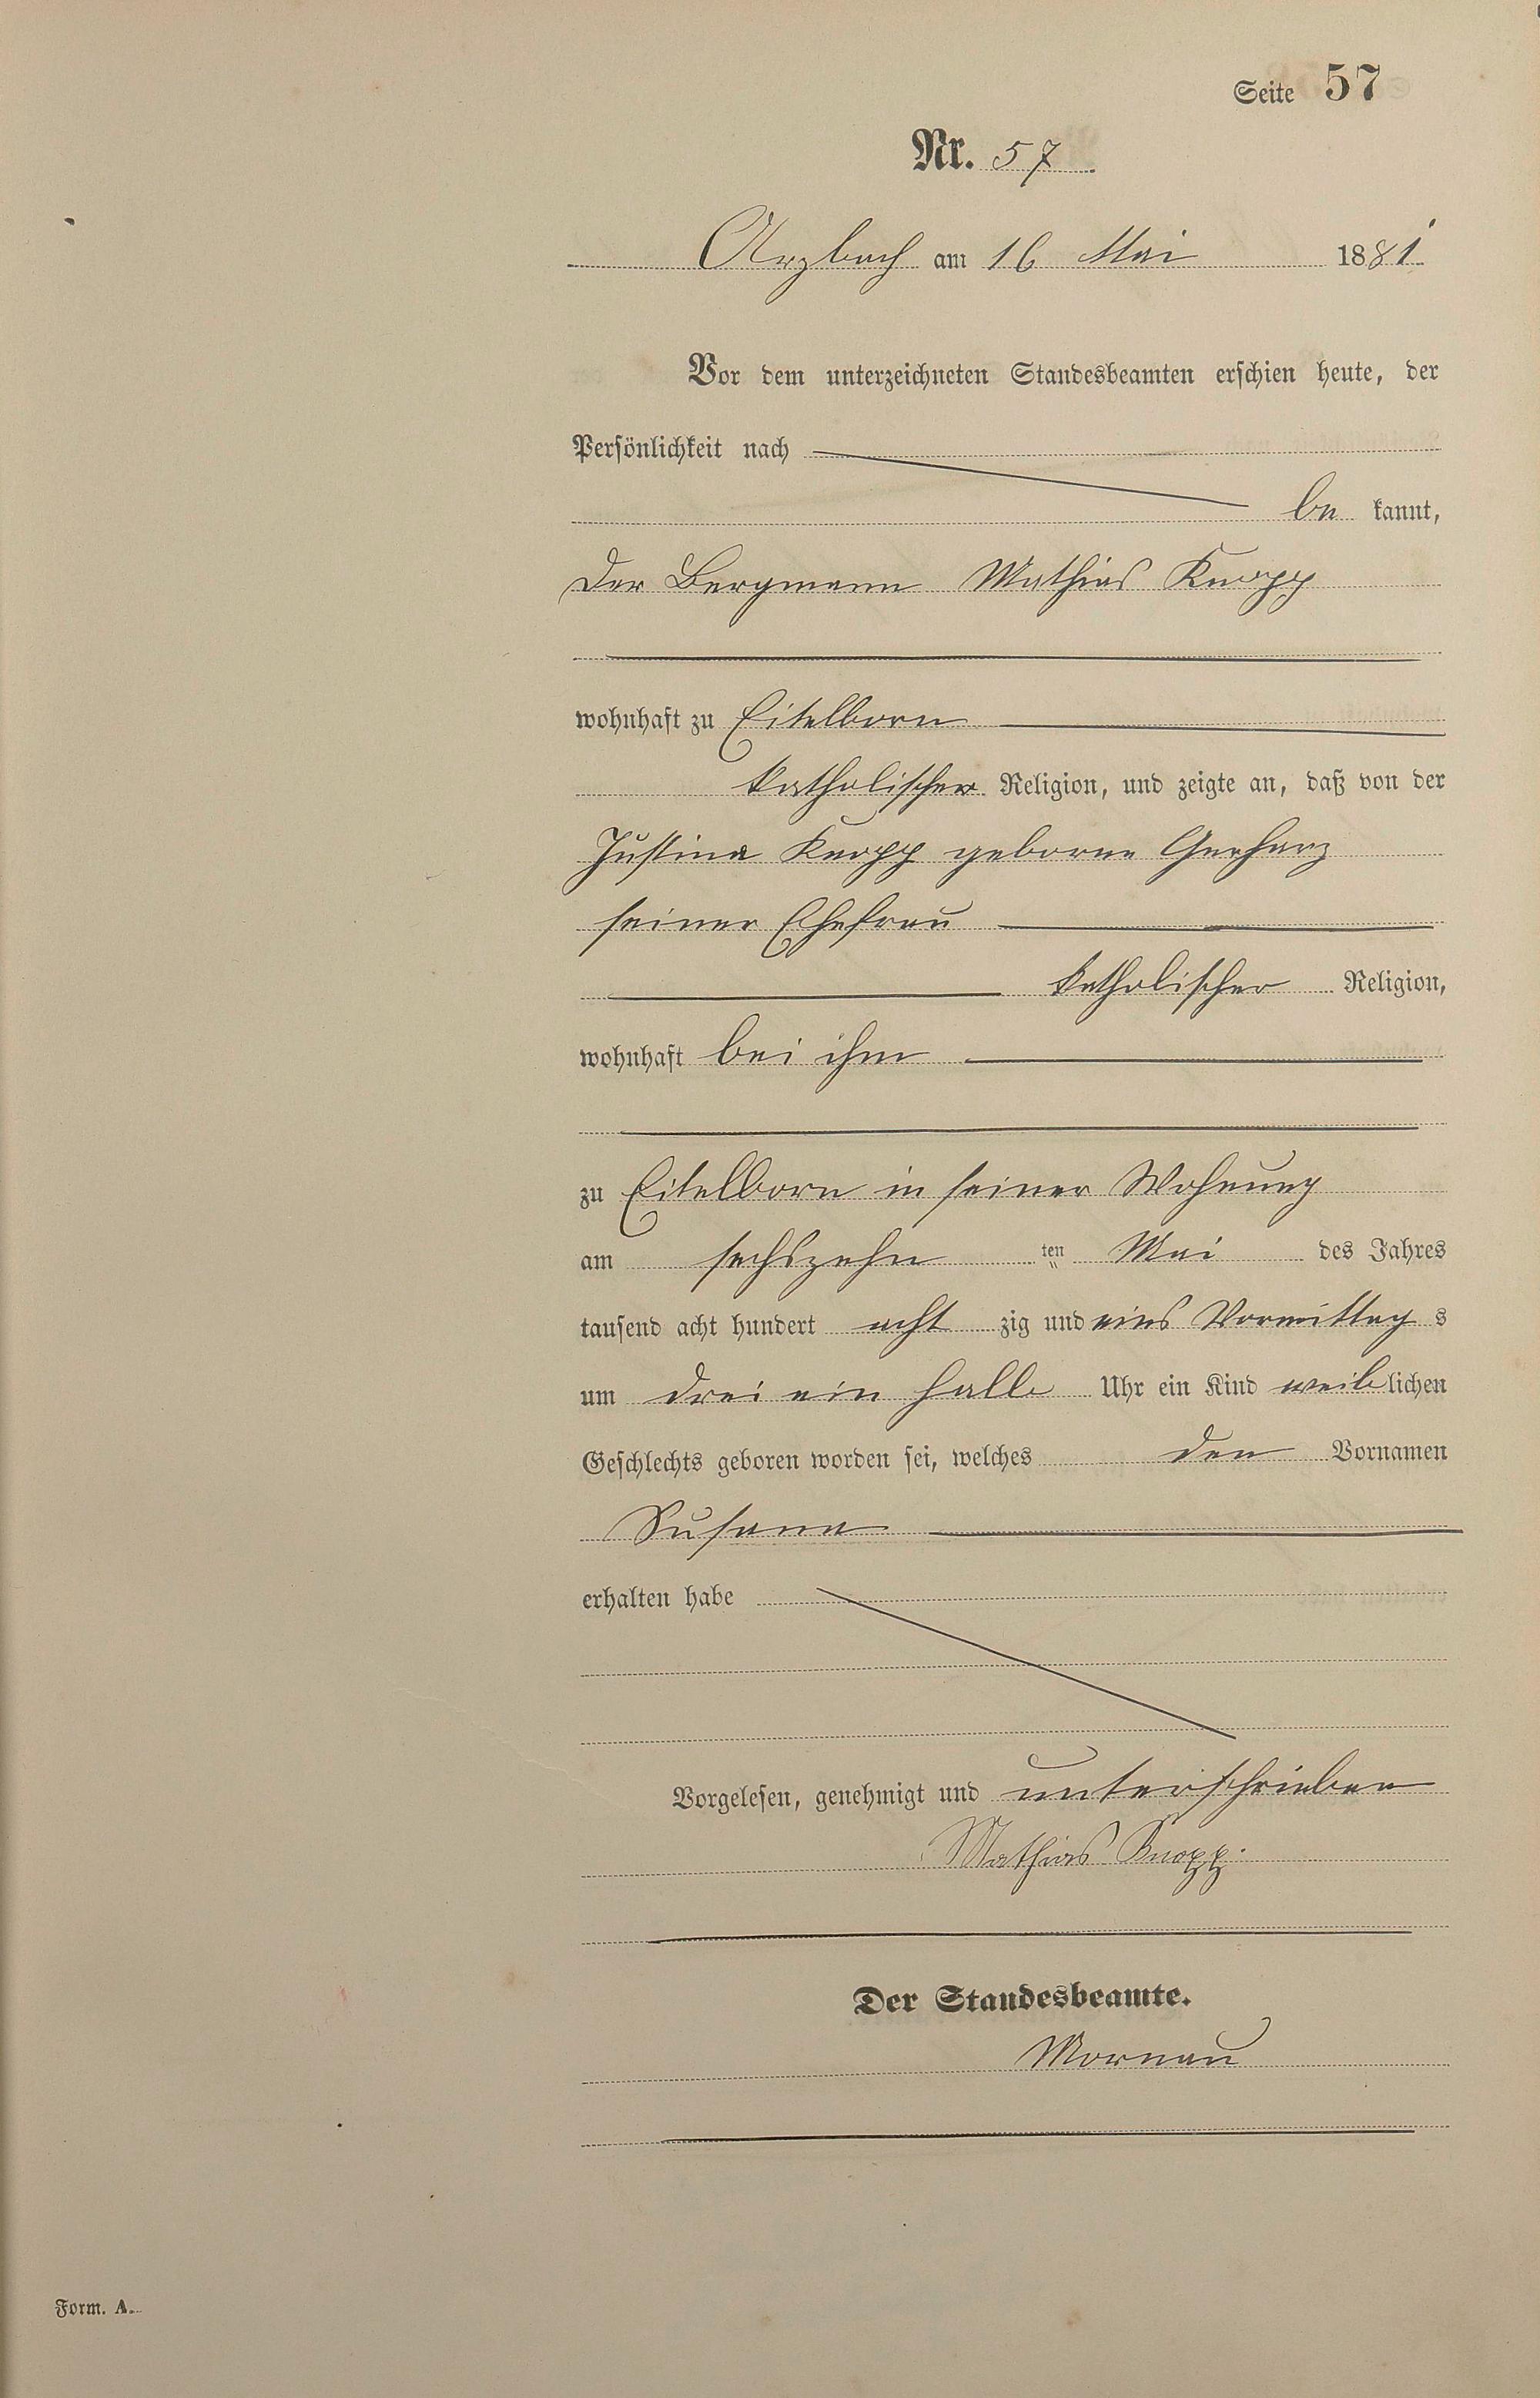 Seite 57
Nr. 57
Arzbach am 16 Mai 1881
Vor dem unterzeichneten Standesbeamten erschien heute, der
Persönlichkeit nach
be kannt,
der Bergmann Mathias Knopp
wohnhaft zu Eitelborn
katholischer Religion, und zeigte an, daß von der
Justina Knopp geborne Gerharz
seiner Ehefrau
katholischer Religion,
wohnhaft bei ihm
zu Eitelborn in seiner Wohnung
am sechszehn ten Mai des Jahres
tausend acht hundert acht zig und eins Vormittag s
um drei ein halb Uhr ein Kind weib lichen
Geschlechts geboren worden sei, welches den Vornamen
Susana
erhalten habe
Vorgelesen, genehmigt und unterschrieben
Mathias Knopp.
Der Standesbeamte.
Mornau
Form. A.